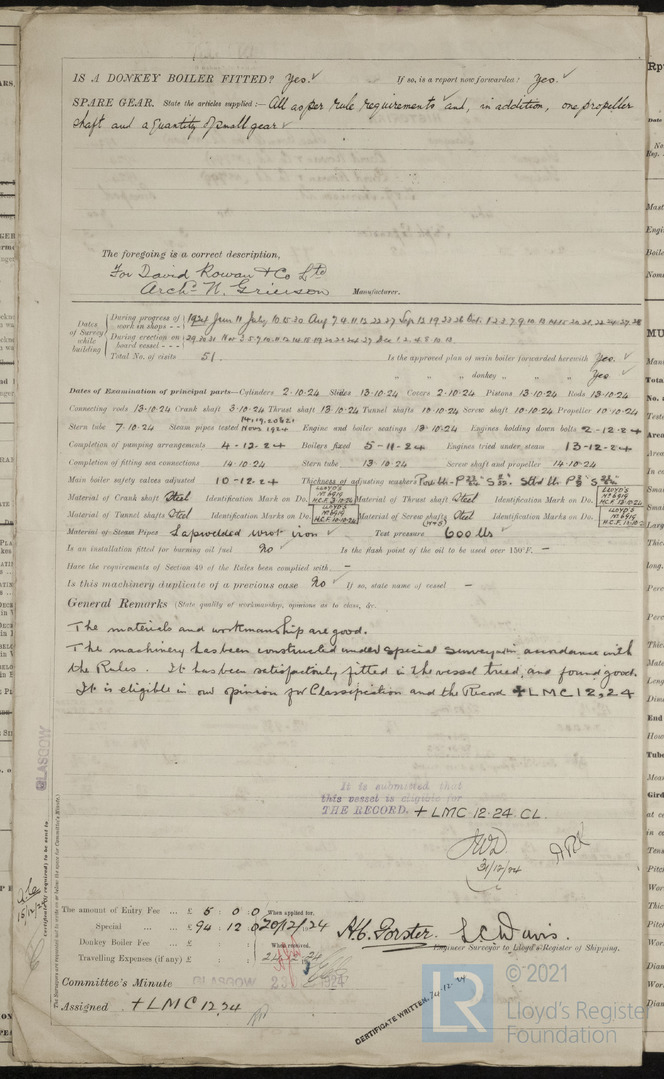 IS A DONKEY BOILER FITTED? Yes. ✓ If so, is a report now forwarded? Yes. ✓
SPARE GEAR. State the articles supplied:— All as per rule requirements ✓ and, in addition, one propeller
shaft and a quantity of small gear ✓
The foregoing is a correct description,
For David Rowan & Co Ltd
Archd N. Grierson Manufacturer.
Dates of Survey while building
During progress of work in shops - - 1924 June 11 July 10. 15. 30 Aug 7. 9. 11. 13. 22. 27 Sep 12. 19. 23. 26 Oct. 1. 2. 3. 7. 9. 10. 13.
During erection on board vessel - - - 29. 30. 31 Nov 3. 5. 7. 10. 11. 12. 14.
Total No. of visits 51. Is the approved plan of main boiler forwarded herewith Yes. ✓
" " " donkey " " " Yes ✓
Dates of Examination of principal parts—Cylinders 2·10·24 Slides 13·10·24 Covers 2·10·24 Pistons 13·10·24 Rods 13·10·24
Connecting rods 13·10·24 Crank shaft 3·10·24 Thrust shaft 13·10·24 Tunnel shafts 10·10·24 Screw shaft 10·10·24 Propeller 10·10·24
Stern tube 7·10·24 Steam pipes tested Nov. 1924 Engine and boiler seatings 13·10·24 Engines holding down bolts 2-12-24
Completion of pumping arrangements 4-12-24 Boilers fixed 5-11-24 Engines tried under steam 13-12-24
Completion of fitting sea connections 14·10·24 Stern tube 13·10·24 Screw shaft and propeller 14·10·24
Main boiler safety valves adjusted 10-12-24 Thickness of adjusting washers
Material of Crank shaft Steel Identification Mark on Do. LLOYD'S No 6919 H.C.F. 3·10·24 Material of Thrust shaft Steel Identification Mark on Do. LLOYD'S No 6919 H.C.F. 13·10·24
Material of Tunnel shafts Steel Identification Marks on Do. LLOYD'S No 6919 H.C.F. 10·10·24 Material of Screw shafts Steel Identification Marks on Do. LLOYD'S No 6919 H.C.F. 10·10·24
Material of Steam Pipes Lapwelded wrot iron ✓ Test pressure 600 lbs ✓
Is an installation fitted for burning oil fuel No ✓ Is the flash point of the oil to be used over 150°F. —
Have the requirements of Section 49 of the Rules been complied with. —
Is this machinery duplicate of a previous case No ✓ If so, state name of vessel —
General Remarks (State quality of workmanship, opinions as to class, &c.
The materials and workmanship are good.
The machinery has been constructed under special survey in accordance with
the Rules. It has been satisfactorily fitted in the vessel tried, and found good.
It is eligible in our opinion for Classification and the Record +LMC 12,24
GLASGOW
It is submitted that
this vessel is eligible for
THE RECORD. + LMC 12·24. CL.
31/12/24
ARL
Certificate (if required) to be sent to
The amount of Entry Fee ... £ 5 : 0 : 0 When applied for,
Special ... £ 94 : 12 : 0 20/12/24
Donkey Boiler Fee ... £ : : When received,
Travelling Expenses (if any) £ : :
H.C. Forster. L.C. Davis.
Engineer Surveyor to Lloyd's Register of Shipping.
Committee's Minute GLASGOW 23 1924
Assigned + LMC 12,24
CERTIFICATE WRITTEN.
© 2021
LR Lloyd's Register
Foundation